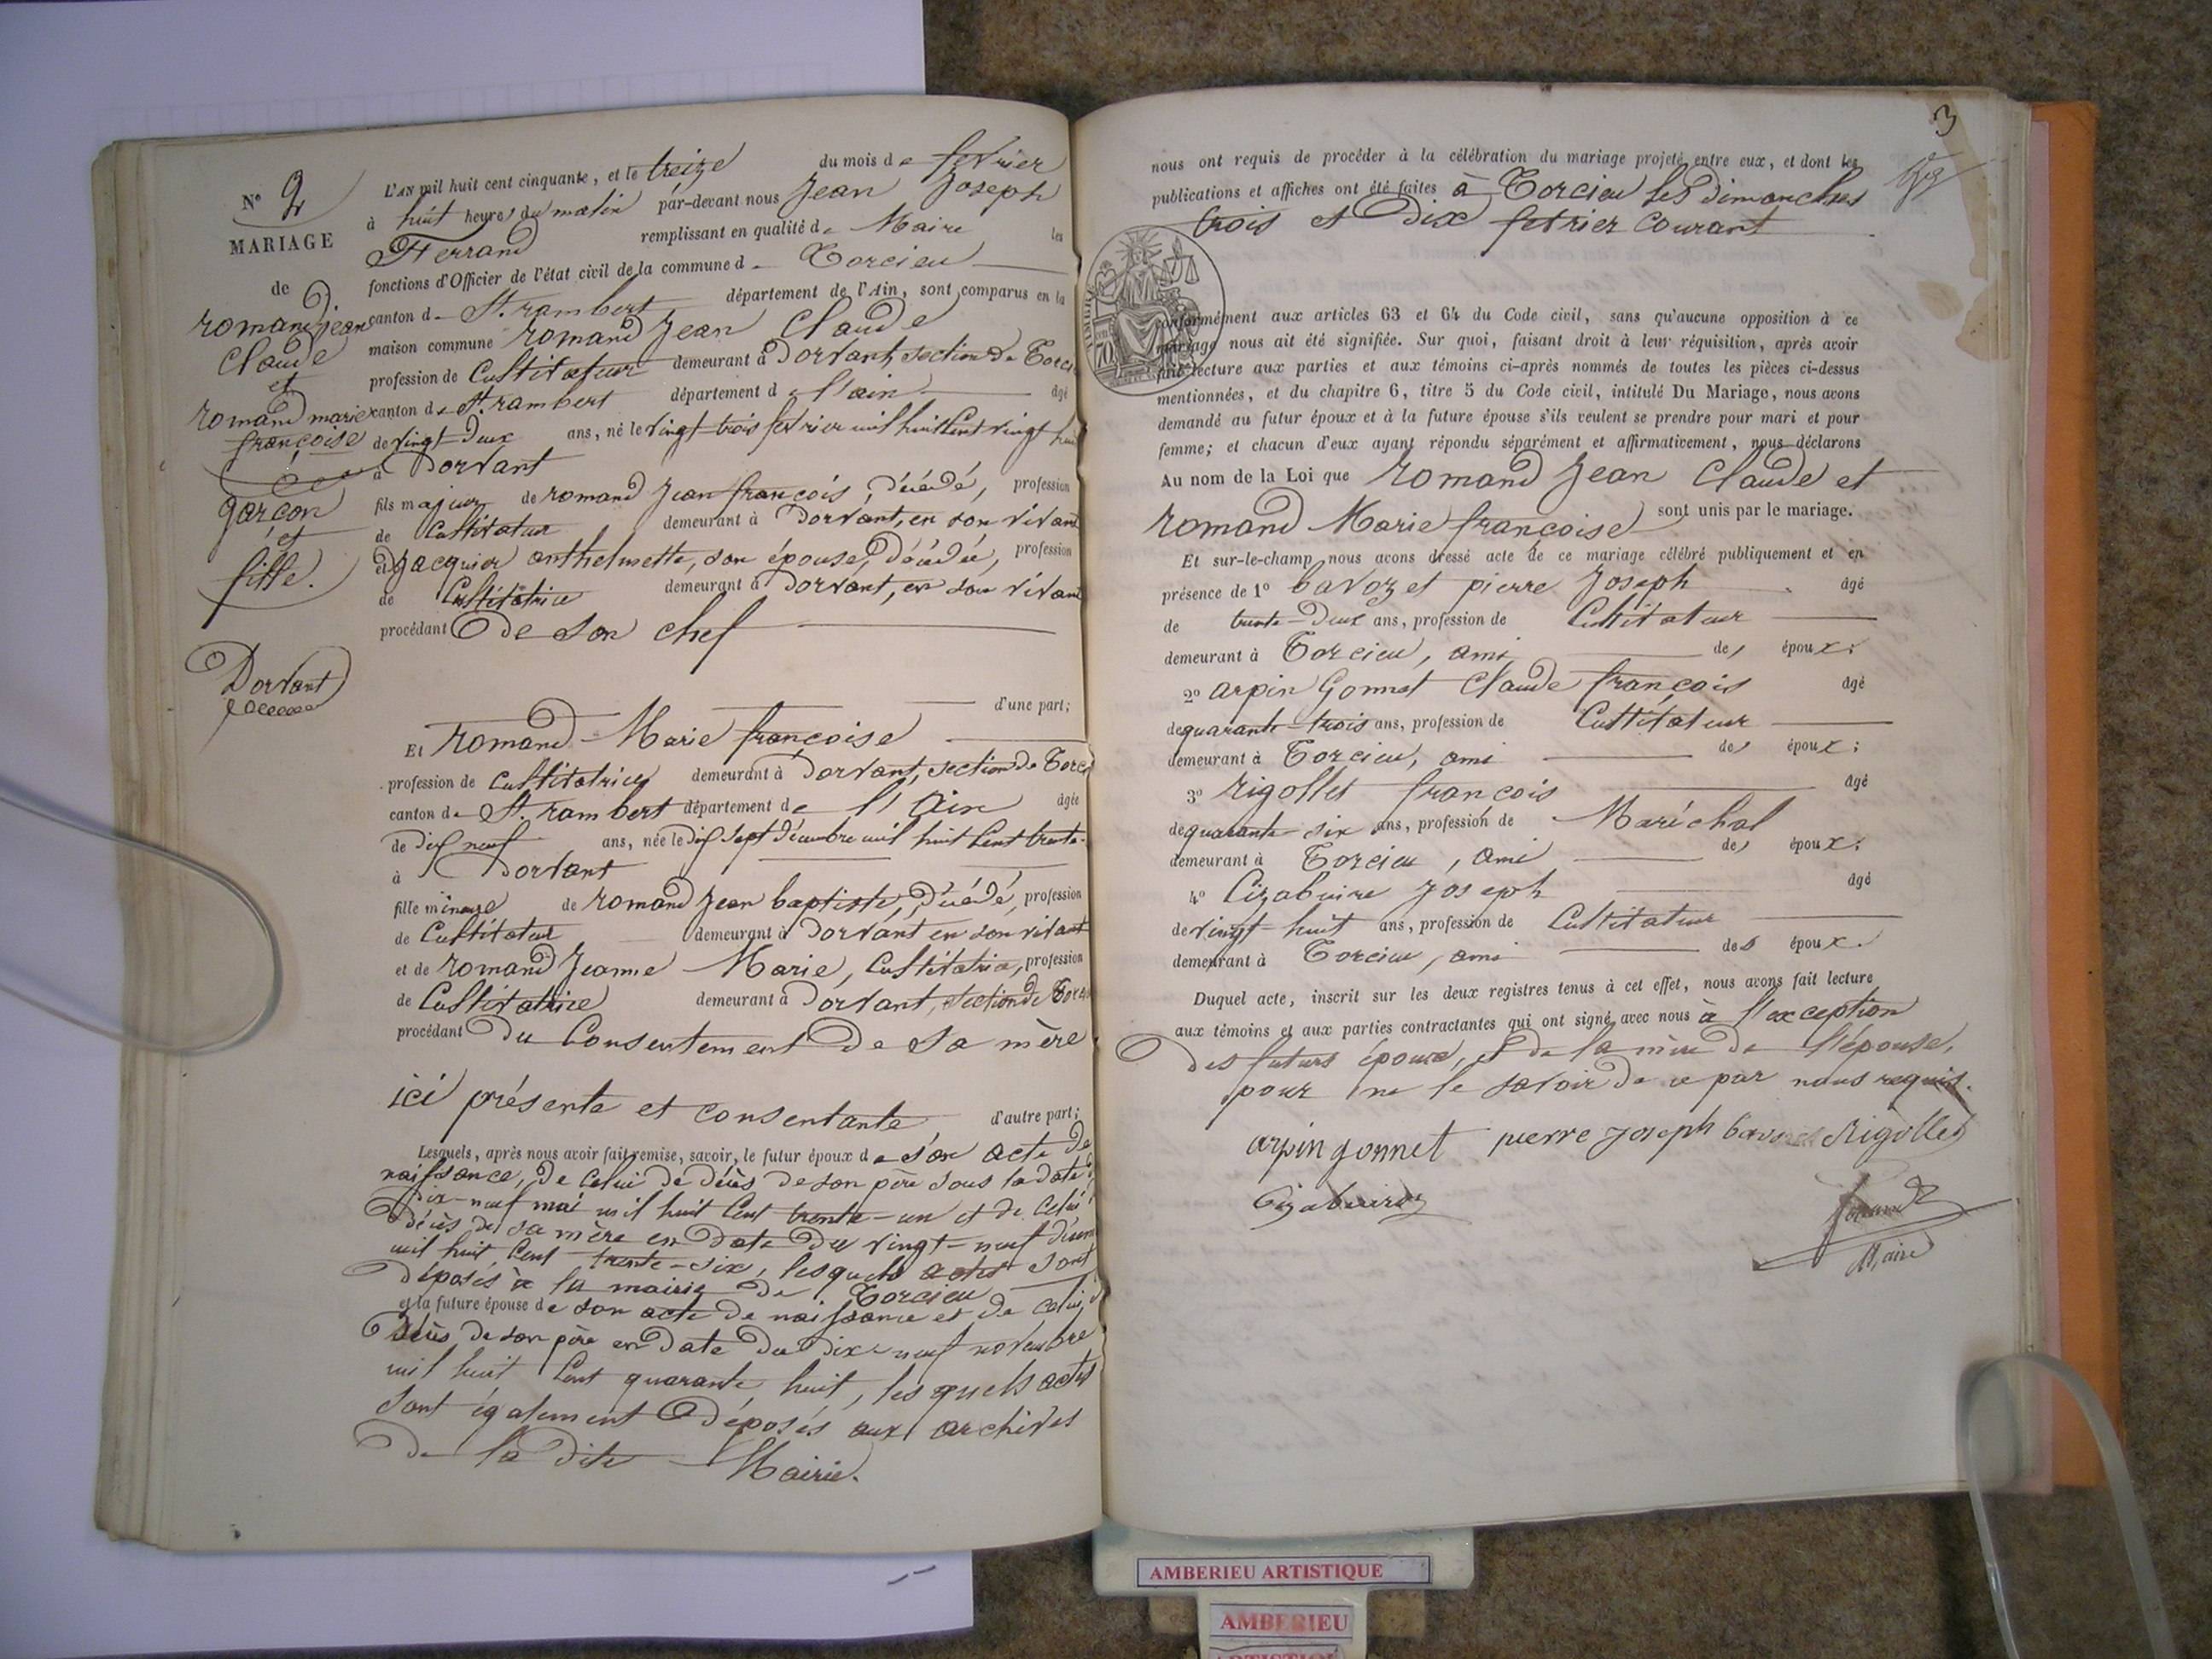 N° 2
MARIAGE
de
romand jean
Claude
et
romand marie
françoise
garçon
et
fille.
Dorvant
L'AN mil huit cent cinquante, et le treize du mois de février
à huit heures du matin par-devant nous Jean Joseph
Ferrand remplissant en qualité de Maire les
fonctions d'Officier de l'état civil de la commune de Torcieu
canton de St. rambert département de l'Ain, sont comparus en la
maison commune romand Jean Claude
profession de Cultivateur demeurant à Dorvant, section de Torci
canton de St. rambert département de l'ain âgé
de vingt-deux ans, né le vingt-trois février mil huit Cent vingt huit
à Dorvant
fils majeur de romand Jean françois, décédé, profession
de Cultivateur demeurant à Dorvant, en son vivant
et Jacquier anthelmette, son épouse, décédée, profession
de Cultivatrice demeurant à Dorvant, en son vivant
procédant de son chef
d'une part;
Et romand Marie françoise
profession de Cultivatrice demeurant à Dorvant, section de Torci
canton de St. rambert département de l'Ain âgée
de dix neuf ans, née le dix sept décembre mil huit Cent trente
à Dorvant
fille mineure de romand Jean baptiste, décédé, profession
de Cultivateur demeurant à Dorvant en son vivant
et de romand Jeanne Marie, Cultivatrice, profession
de Cultivatrice demeurant à Dorvant, section de Torci
procédant du Consentement de sa mère
ici présente et consentante d'autre part;
Lesquels, après nous avoir fait remise, savoir, le futur époux de son acte de
naissance, de celui de décès de son père sous la date d
dix-neuf mai mil huit Cent trente-un et de celui
décès de sa mère en date du vingt-neuf décem
mil huit Cent trente-six, lesquels actes sont
déposés à la mairie de Torcieu
et la future épouse de son acte de naissance et de celui d
décès de son père en date du dix-neuf novembre
mil huit Cent quarante huit, lesquels actes
sont également déposés aux archives
de la dite Mairie.
3
nous ont requis de procéder à la célébration du mariage projeté entre eux, et dont les
publications et affiches ont été faites à Torcieu les dimanches
trois et Dix février courant
conformément aux articles 63 et 64 du Code civil, sans qu'aucune opposition à ce
mariage nous ait été signifiée. Sur quoi, faisant droit à leur réquisition, après avoir
fait lecture aux parties et aux témoins ci-après nommés de toutes les pièces ci-dessus
mentionnées, et du chapitre 6, titre 5 du Code civil, intitulé Du Mariage, nous avons
demandé au futur époux et à la future épouse s'ils veulent se prendre pour mari et pour
femme; et chacun d'eux ayant répondu séparément et affirmativement, nous déclarons
Au nom de la Loi que romand Jean Claude et
romand Marie françoise sont unis par le mariage.
Et sur-le-champ nous avons dressé acte de ce mariage célébré publiquement et en
présence de 1° bavozet pierre Joseph âgé
de trente-Deux ans, profession de Cultivateur
demeurant à Torcieu, ami des époux;
2° arpin Gonnet Claude françois âgé
de quarante-trois ans, profession de Cultivateur
demeurant à Torcieu, ami des époux;
3° rigollet françois âgé
de quarante-six ans, profession de Maréchal
demeurant à Torcieu, ami des époux;
4° Cizabuire Joseph âgé
de vingt-huit ans, profession de Cultivateur
demeurant à Torcieu, ami des époux.
Duquel acte, inscrit sur les deux registres tenus à cet effet, nous avons fait lecture
aux témoins et aux parties contractantes qui ont signé avec nous à l'exception
des futurs époux, et de la mère de l'épouse,
pour ne le savoir de ce par nous requis.
arpin gonnet pierre Joseph bavozet Rigollet
Cizabuire
ferrand
Maire
AMBERIEU ARTISTIQUE
AMBERIEU
ARTISTIQUE